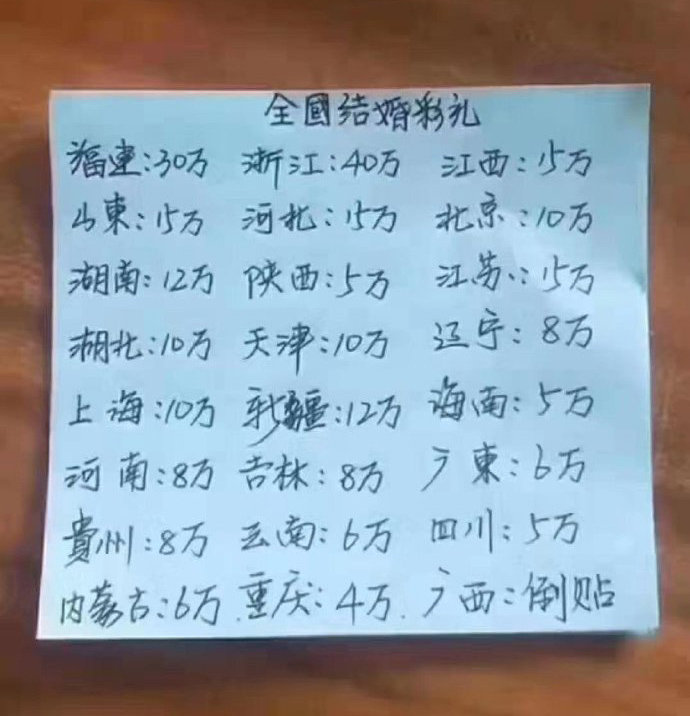 全國结婚彩礼
福建:30万 浙江:40万 江西:15万
山東:15万 河北:15万 北京:10万
湖南:12万 陕西:5万 江苏:15万
湖北:10万 天津:10万 辽宁:8万
上海:10万 新疆:12万 海南:5万
河南:8万 吉林:8万 广東:6万
貴州:8万 云南:6万 四川:5万
内蒙古:6万 重庆:4万 广西:倒贴